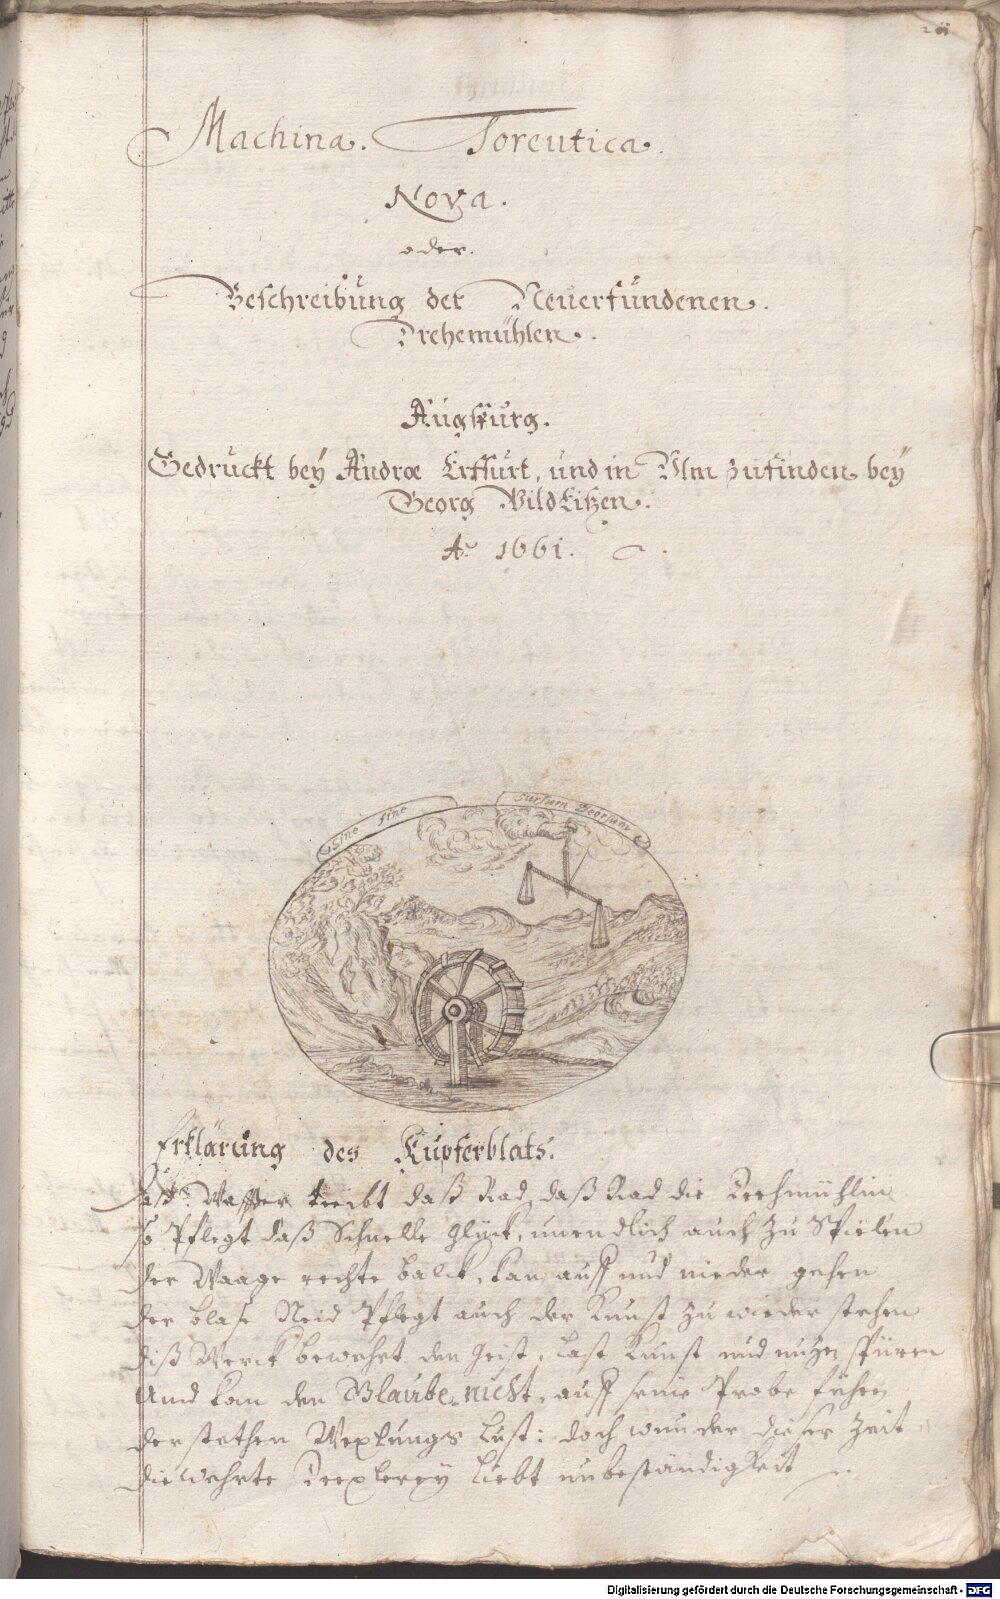 Machina. Toreutica.
Nova.
oder.
Beschreibung der Neuerfundenen.
Drehemühlen.
Augspurg.
Gedruckt bey Andreæ Erffurt, und in Ulm zufinden bey
Georg Wildeißen.
Aº 1661.
Sine fine Sursum Deorsum
Erklärung des Kupferblats.
Wasser treibt daß Rad, daß Rad die Drehmühlin
so Pflegt daß Schnelle glück, unendlich auch zu Spielen
der Waage rechte balck, kan auff und nieder gehen
der blase Neid Pflegt auch der Kunst zu wieder stehen
diß Werck bewehrt den Geist, last Kunst und nuzen spüren
Und kan den Glaube, nicht, auff seine Probe führen
der stethen Wexlungs Lust: doch wunder dieser Zeit
die wehrte Drexlerey liebt unbeständigkeit
Digitalisierung gefördert durch die Deutsche Forschungsgemeinschaft - DFG